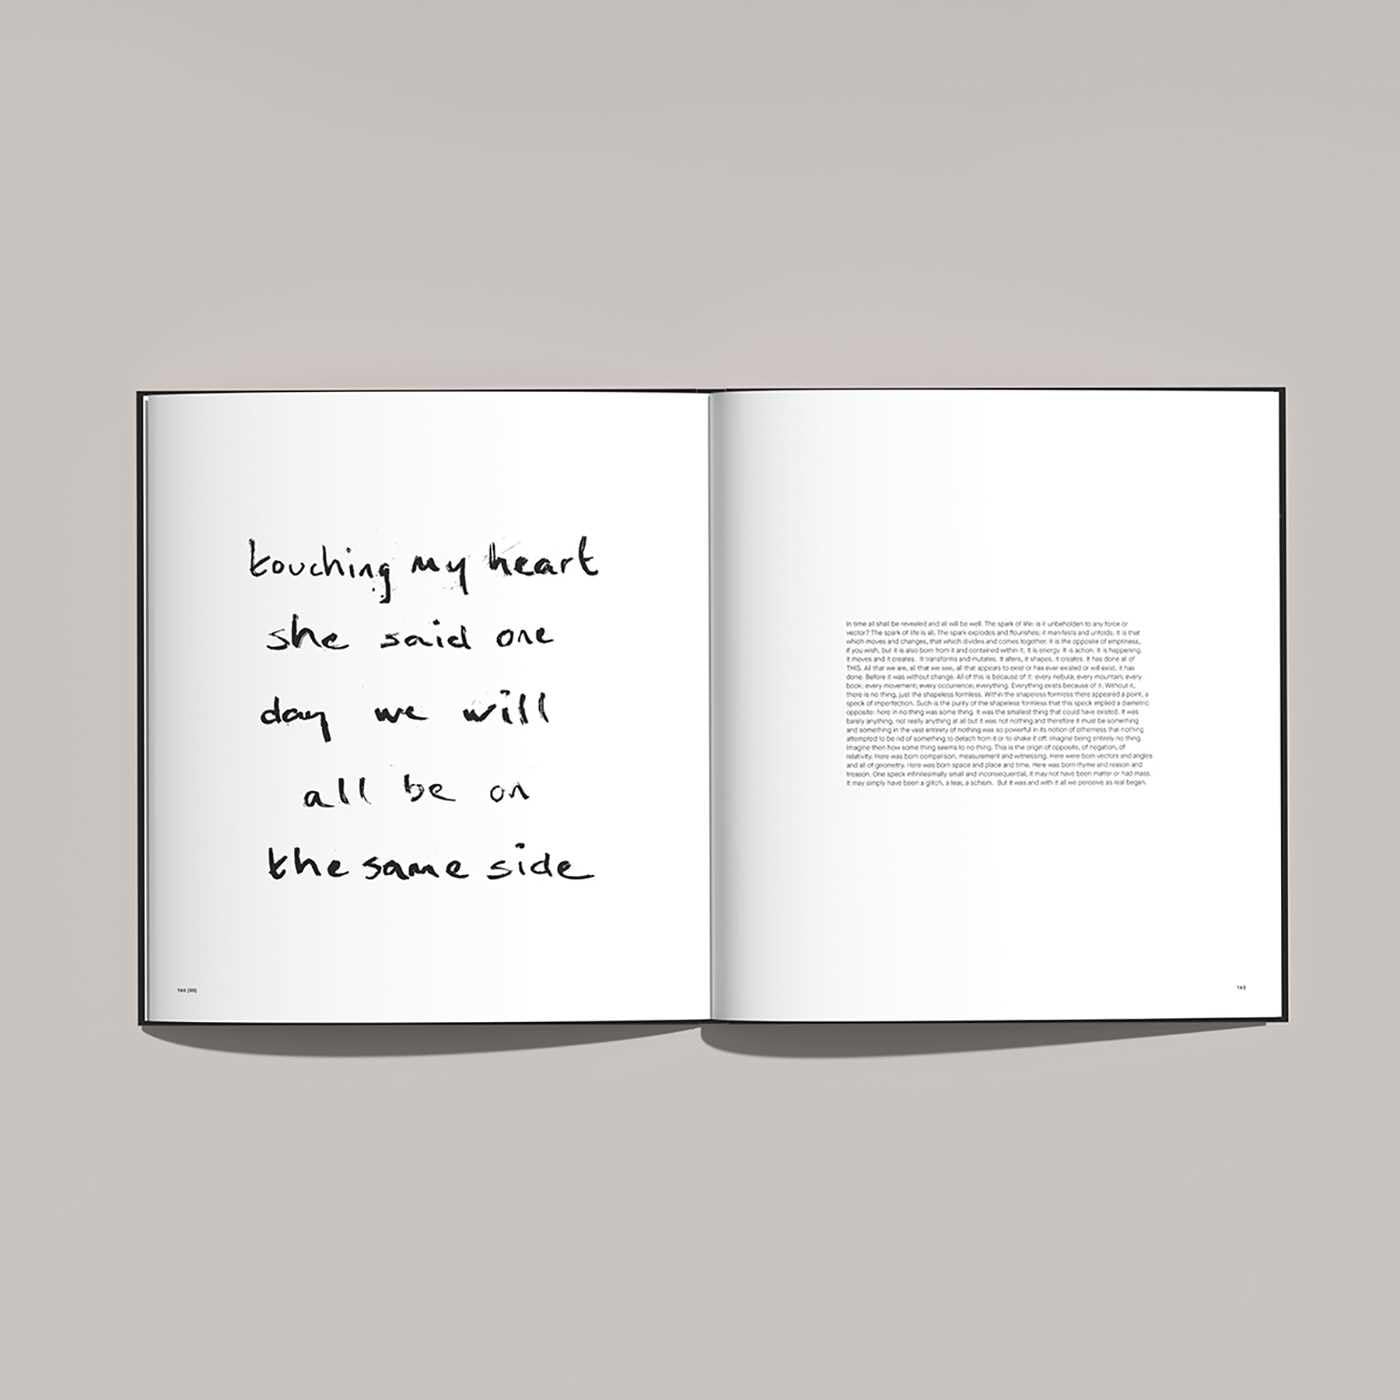 touching my heart
she said one
day we will
all be on
the same side
In time all shall be revealed and all will be well. The spark of life: is it unbeholden to any force or
vector? The spark of life is all. The spark explodes and flourishes; it manifests and unfolds. It is that
which moves and changes, that which divides and comes together. It is the opposite of emptiness,
if you wish, but it is also born from it and contained within it. It is energy. It is action. It is happening.
It moves and it creates. It transforms and mutates. It alters, it shapes, it creates. It has done all of
THIS. All that we are, all that we see, all that appears to exist or has ever existed or will exist, it has
done. Before it was without change. All of this is because of it: every nebula; every mountain; every
book; every movement; every occurrence; everything. Everything exists because of it. Without it,
there is no thing, just the shapeless formless. Within the shapeless formless there appeared a point, a
speck of imperfection. Such is the purity of the shapeless formless that this speck implied a diametric
opposite: here in no thing was some thing. It was the smallest thing that could have existed. It was
barely anything, not really anything at all but it was not nothing and therefore it must be something
and something in the vast entirety of nothing was so powerful in its notion of otherness that nothing
attempted to be rid of something to detach from it or to shake it off. Imagine being entirely no thing.
Imagine then how some thing seems to no thing. This is the origin of opposite, of negation, of
relativity. Here was born comparison, measurement and witnessing. Here were born vectors and angles
and all of geometry. Here was born space and place and time. Here was born rhyme and reason and
treason. One speck infinitesimally small and inconsequential, it may not have been matter or had mass.
It may simply have been a glitch, a tear, a schism. But it was and with it all we perceive as real began.